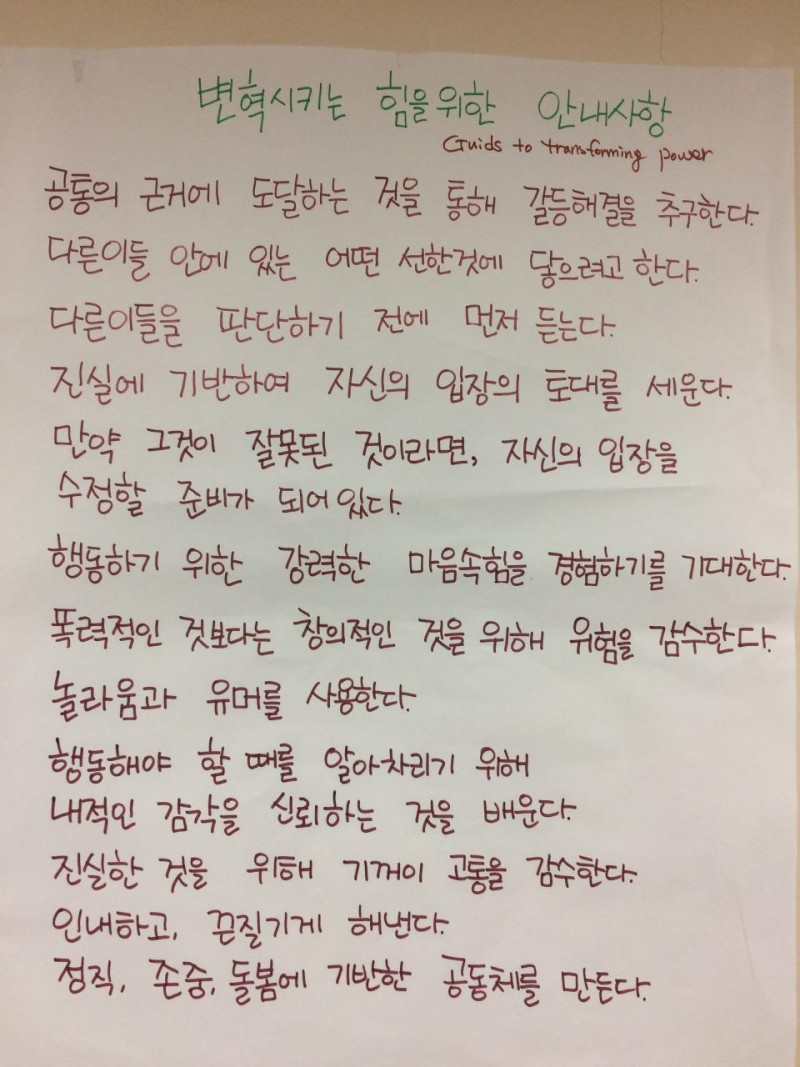 변혁시키는 힘을위한 안내사항
Guids to transforming power
공통의 근거에 도달하는 것을 통해 갈등해결을 추구한다.
다른이들 안에 있는 어떤 선한것에 닿으려고 한다.
다른이들을 판단하기 전에 먼저 듣는다.
진실에 기반하여 자신의 입장의 토대를 세운다.
만약 그것이 잘못된 것이라면, 자신의 입장을
수정할 준비가 되어있다.
행동하기 위한 강력한 마음속힘을 경험하기를 기대한다.
폭력적인 것보다는 창의적인 것을 위해 위험을 감수한다.
놀라움과 유머를 사용한다.
행동해야 할 때를 알아차리기 위해
내적인 감각을 신뢰하는 것을 배운다.
진실한 것을 위해 기꺼이 고통을 감수한다.
인내하고, 끈질기게 해낸다.
정직, 존중, 돌봄에 기반한 공동체를 만든다.